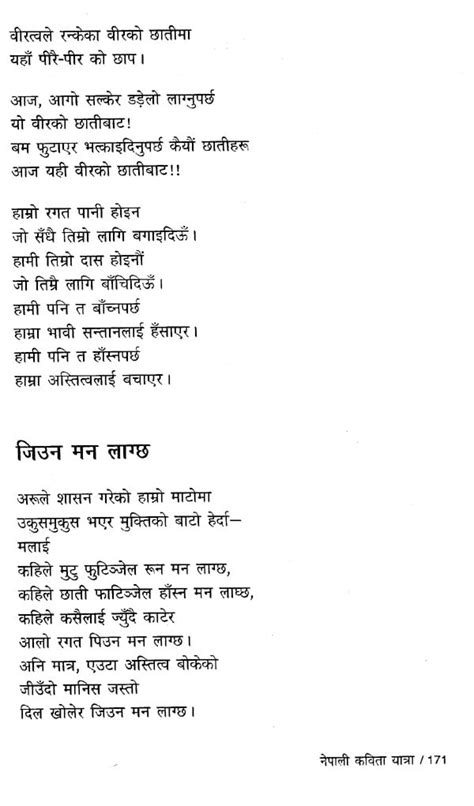 वीरत्वले रन्केका वीरको छातीमा
यहाँ पीरै-पीर को छाप।
आज, आगो सल्केर डड़ेलो लाग्नुपर्छ
यो वीरको छातीबाट!
बम फुटाएर भत्काइदिनुपर्छ कैयौं छातीहरू
आज यही वीरको छातीबाट!!
हाम्रो रगत पानी होइन
जो सँधै तिम्रो लागि बगाइदिऊँ।
हामी तिम्रो दास होइनौं
जो तिम्रै लागि बाँचिदिऊँ।
हामी पनि त बाँच्नपर्छ
हाम्रा भावी सन्तानलाई हँसाएर।
हामी पनि त हाँस्नपर्छ
हाम्रा अस्तित्वलाई बचाएर।
जिउन मन लाग्छ
अरूले शासन गरेको हाम्रो माटोमा
उकुसमुकुस भएर मुक्तिको बाटो हेर्दा—
मलाई
कहिले मुटु फुटिञ्जेल रून मन लाग्छ,
कहिले छाती फाटिञ्जेल हाँस्न मन लाघ्छ,
कहिले कसैलाई ज्युँदै काटेर
आलो रगत पिउन मन लाग्छ।
अनि मात्र, एउटा अस्तित्व बोकेको
जीउँदो मानिस जस्तो
दिल खोलेर जिउन मन लाग्छ।
नेपाली कविता यात्रा / 171